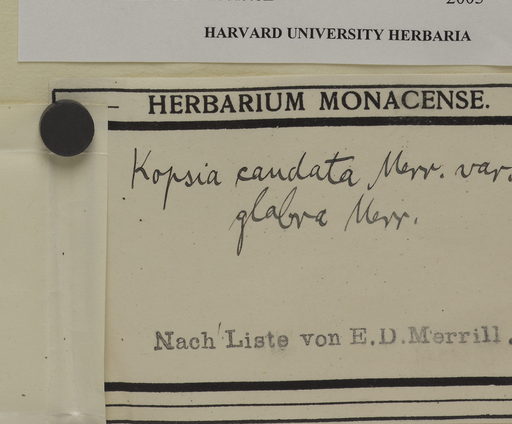 2005
HARVARD UNIVERSITY HERBARIA
– HERBARIUM MONACENSE.
Kopsia caudata Merr. var.
glabra Merr.
Nach Liste von E.D.Merrill.